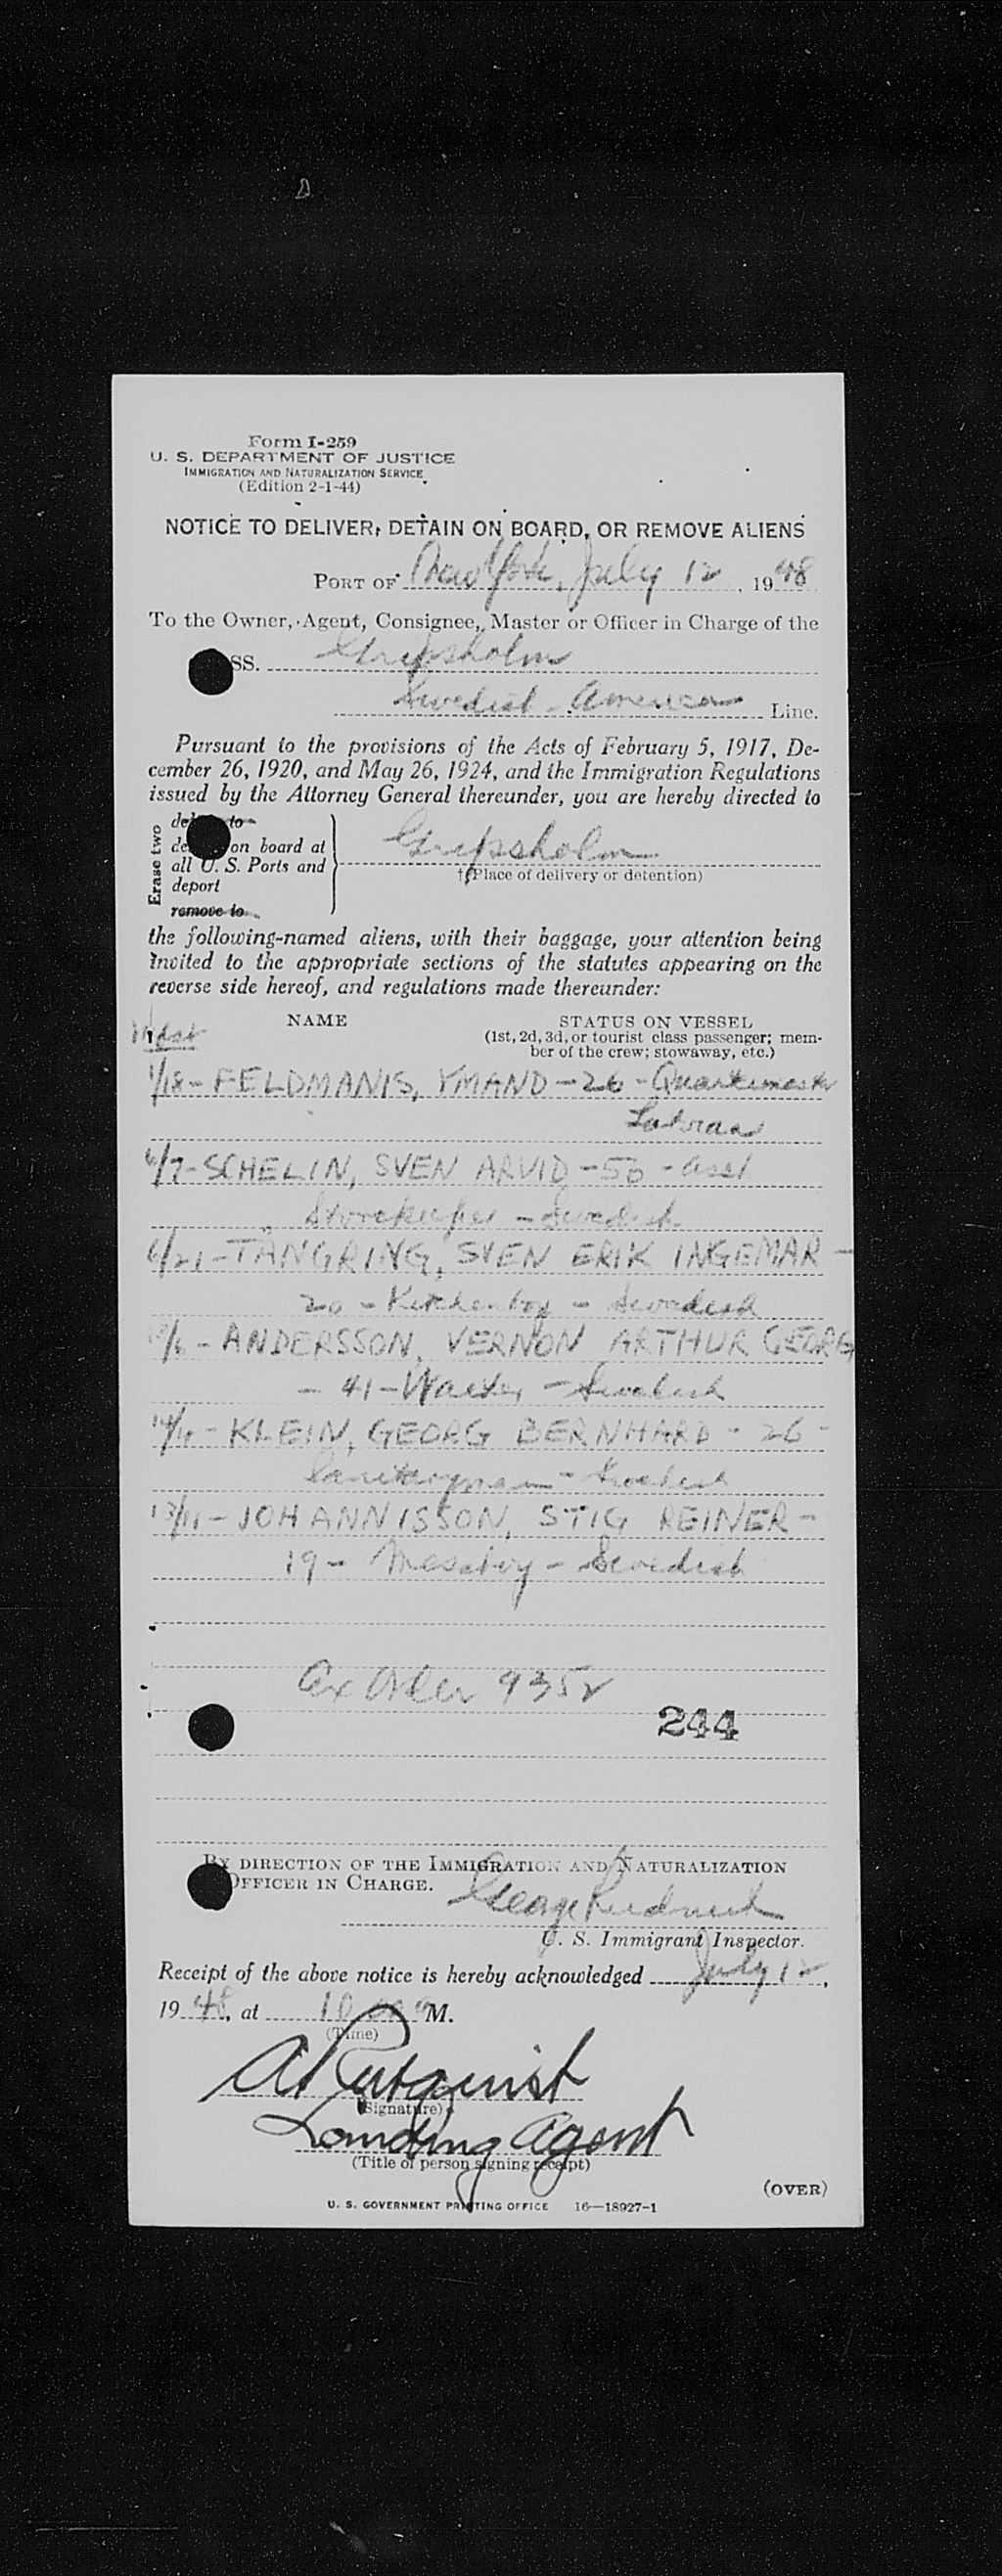 Form I-259
U. S. DEPARTMENT OF JUSTICE
IMMIGRATION AND NATURALIZATION SERVICE
(Edition 2-1-44)
NOTICE TO DELIVER, DETAIN ON BOARD, OR REMOVE ALIENS
PORT OF New York, July 12, 1948
To the Owner, Agent, Consignee, Master or Officer in Charge of the
SS. Gripsholm
Swedish American Line.
Pursuant to the provisions of the Acts of February 5, 1917, De-
cember 26, 1920, and May 26, 1924, and the Immigration Regulations
issued by the Attorney General thereunder, you are hereby directed to
Erase two
to
on board at
all U. S. Ports and
deport
remove to
Gripsholm
†(Place of delivery or detention)
the following-named aliens, with their baggage, your attention being
invited to the appropriate sections of the statutes appearing on the
reverse side hereof, and regulations made thereunder:
NAME
STATUS ON VESSEL
(1st, 2d, 3d, or tourist class passenger; mem-
ber of the crew; stowaway, etc.)
1/18 - FELDMANIS, YMAND - 26 - Quartermaster
6/7 - SCHELIN, SVEN ARVID - 50 - asst
Storekeeper - Swedish
6/21 - TÄNGRING, SVEN ERIK INGEMAR -
20 - Kitchenboy - Swedish
ANDERSSON, VERNON ARTHUR GEORG
- 41 - Waiter - Swedish
KLEIN, GEORG BERNHARD - 26 -
- Swedish
13/11 - JOHANNISSON, STIG REINER -
19 - Messboy - Swedish
935
244
BY DIRECTION OF THE IMMIGRATION AND NATURALIZATION
OFFICER IN CHARGE.
George
U. S. Immigrant Inspector.
Receipt of the above notice is hereby acknowledged July 12,
1948, at 10 M.
(Time)
(Signature)
Landing Agent
(Title of person signing receipt)
(OVER)
U. S. GOVERNMENT PRINTING OFFICE 16—18927-1